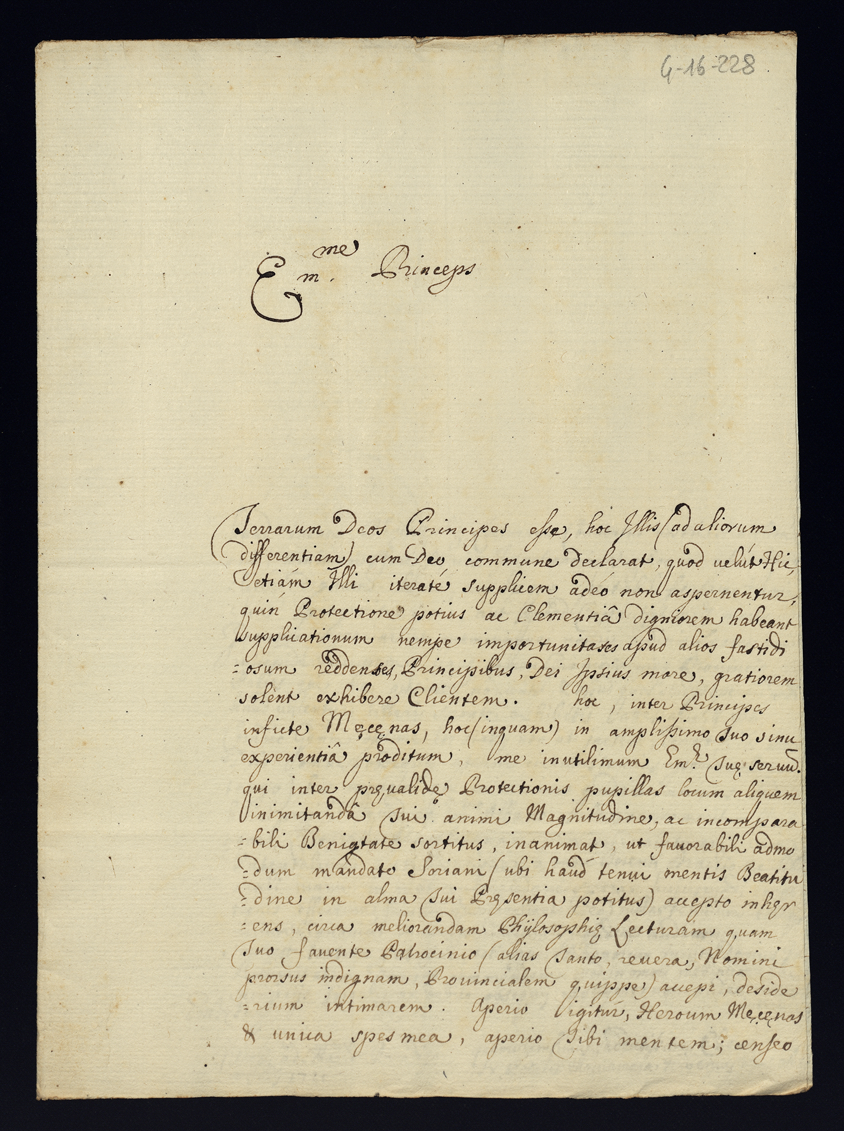 G-16-228
Em.me Princeps
Terrarum Deos Principes esse, hoc Illis (ad aliorum
differentiam) cum Deo commune declarat, quod velút Hic,
etiám Illi iteraté supplicem adeó non aspernentur,
quin Protectione potius ac Clementiâ digniorem habeant
supplicationum nempe importunitates apud alios fastidi
=osum reddentes, Principibus, Dei Ipsius more, gratiorem
solent exhibere Clientem. hoc, inter Principes
inficte Męcęnas, hoc (inquam) in amplissimo suo sinu
experientiâ proditum, me inutilimum Em.ę suę seruũ.
qui inter pręualidę Protectionis pupillas locum aliquem
inimitandâ sui animi Magnitudine, ac incompara
=bili Benigtate sortitus, inanimat, ut fauorabili admo
=dum mandato Soriani (ubi haud tenui mentis Beatitu
=dine in alma sui Pręsentia potitus) accepto inhęr
=ens, circa meliorandam Phylosophię Lecturam quam
suo fauente Patrocinio (alias santo, reuera, Nomini
prorsus indignam, Prouincialem quippe) accepi, deside
=rium intimarem. Aperio igitur, Heroum Męcęnas
& unica spes mea, aperio sibi mentem; censeo